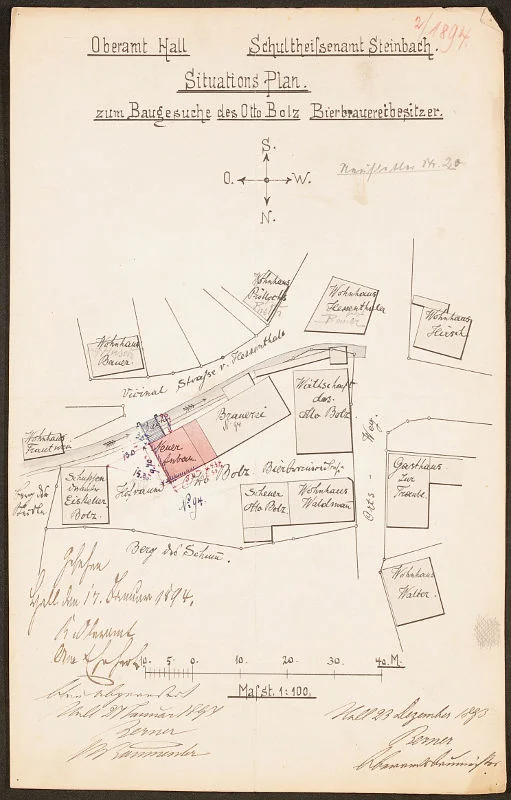 2/1894.
Oberamt Hall Schultheißenamt Steinbach.
Situations Plan.
zum Baugesuche des Otto Bolz Bierbrauereibesitzer.
S.
O. W.
N.
Nr. 20
Wohnhaus
Wohnhaus
Hessenthaler
Wohnhaus
Hirsch
Wohnhaus
Bauer.
Vicinal Straße v. Hessenthal
Brauerei
N. 94
Wirthschaft
des
Otto Bolz
Neuer
Anbau
Wohnhaus
Weg.
Orts -
Schuppen
Eiskeller
Bolz.
Hofraum
Otto Bolz
No 94.
Scheuer
Otto Bolz
Wohnhaus
Waldman
Gasthaus
zur
Traube.
Berg des
Wohnhaus
Walter.
Gesehen
Hall den 17. Januar 1894.
K. Oberamt
10. 5 0. 10. 20. 30. 40. M.
Maßst. 1:100.
Hall 27 Januar 1894
Berner
Hall 23 Dezember 1893
Berner
Oberamtsbaumeister